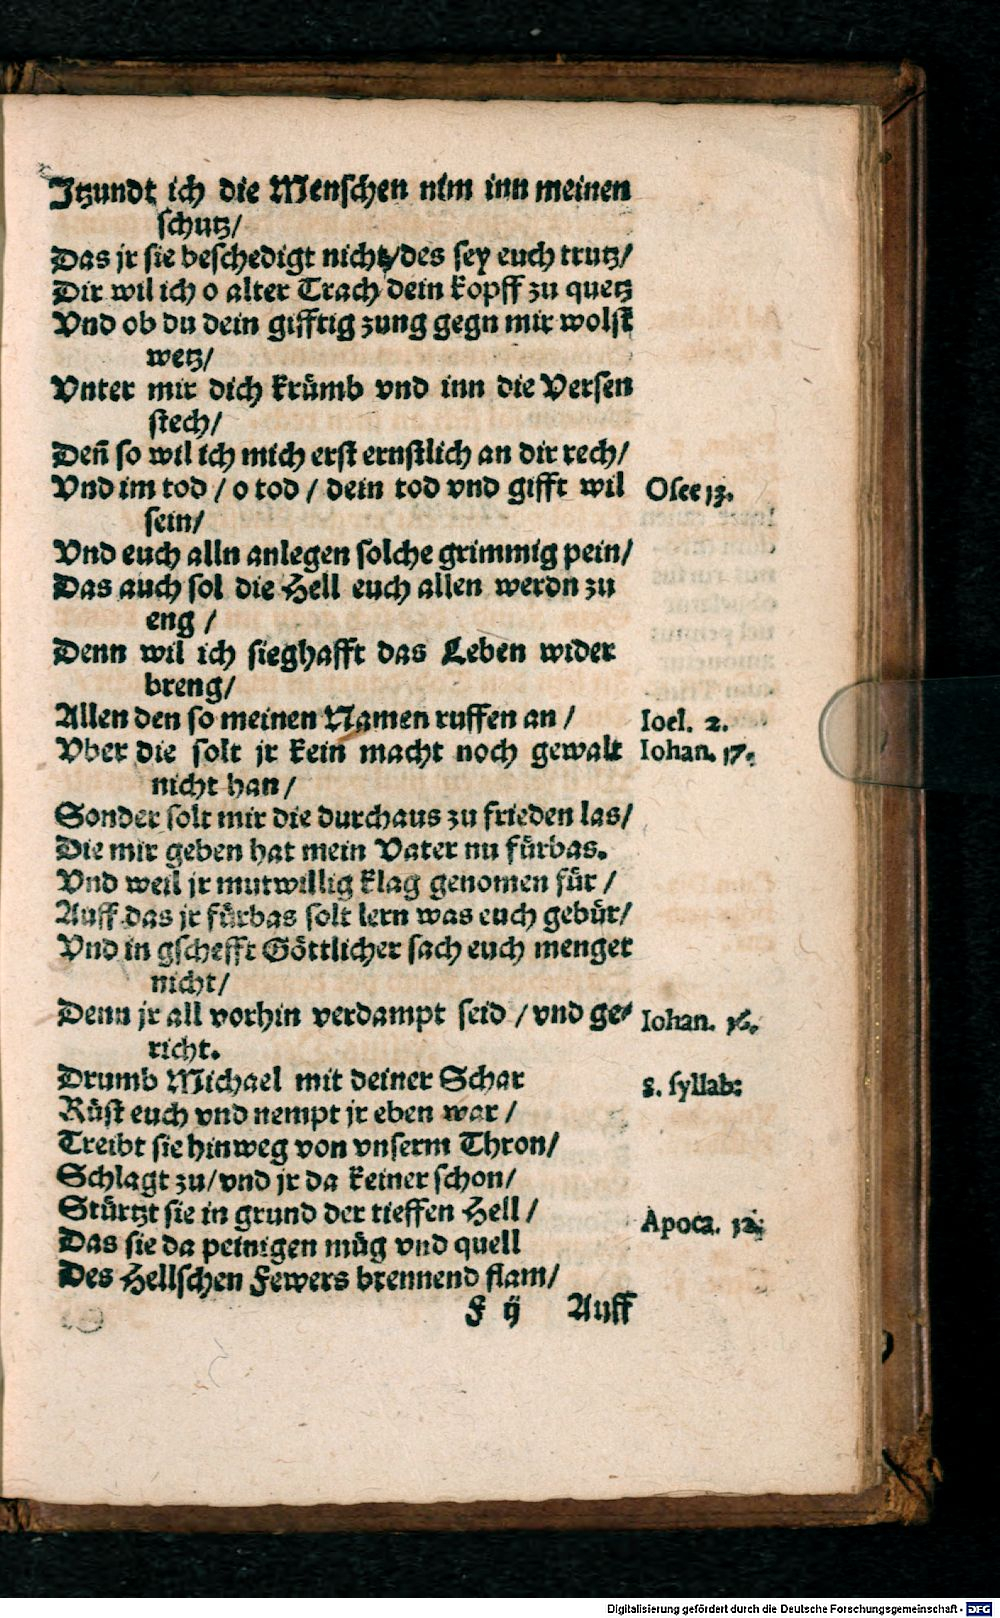 Jtzundt ich die Menschen nim inn meinen
schutz/
Das jr sie beschedigt nicht/des sey euch trutz/
Dir wil ich o alter Trach dein kopff zu quetz
Vnd ob du dein gifftig zung gegn mir wolst
wetz/
Vnter mir dich krümb vnd inn die Versen
stech/
Deñ so wil ich mich erst ernstlich an dir rech/
Vnd im tod / o tod / dein tod vnd gifft wil Osee 13.
sein/
Vnd euch alln anlegen solche grimmig pein/
Das auch sol die Hell euch allen werdn zu
eng /
Denn wil ich sieghafft das Leben wider
breng/
Allen den so meinen Namen ruffen an / Ioel. 2.
Vber die solt jr kein macht noch gewalt Iohan. 17.
nicht han /
Sonder solt mir die durchaus zu frieden las/
Die mir geben hat mein Vater nu fürbas.
Vnd weil jr mutwillig klag genomen für /
Auff das jr fürbas solt lern was euch gebür/
Vnd in gschefft Göttlicher sach euch menget
nicht/
Denn jr all vorhin verdampt seid / vnd ge- Iohan. 16.
richt.
Drumb Michael mit deiner Schar 8. syllab:
Rüst euch vnd nempt jr eben war /
Treibt sie hinweg von vnserm Thron/
Schlagt zu/vnd jr da keiner schon/
Stürtzt sie in grund der tieffen Hell / Apoca. 12.
Das sie da peinigen müg vnd quell
Des Hellschen Fewers brennend flam/
F ij Auff
Digitalisierung gefördert durch die Deutsche Forschungsgemeinschaft - DFG